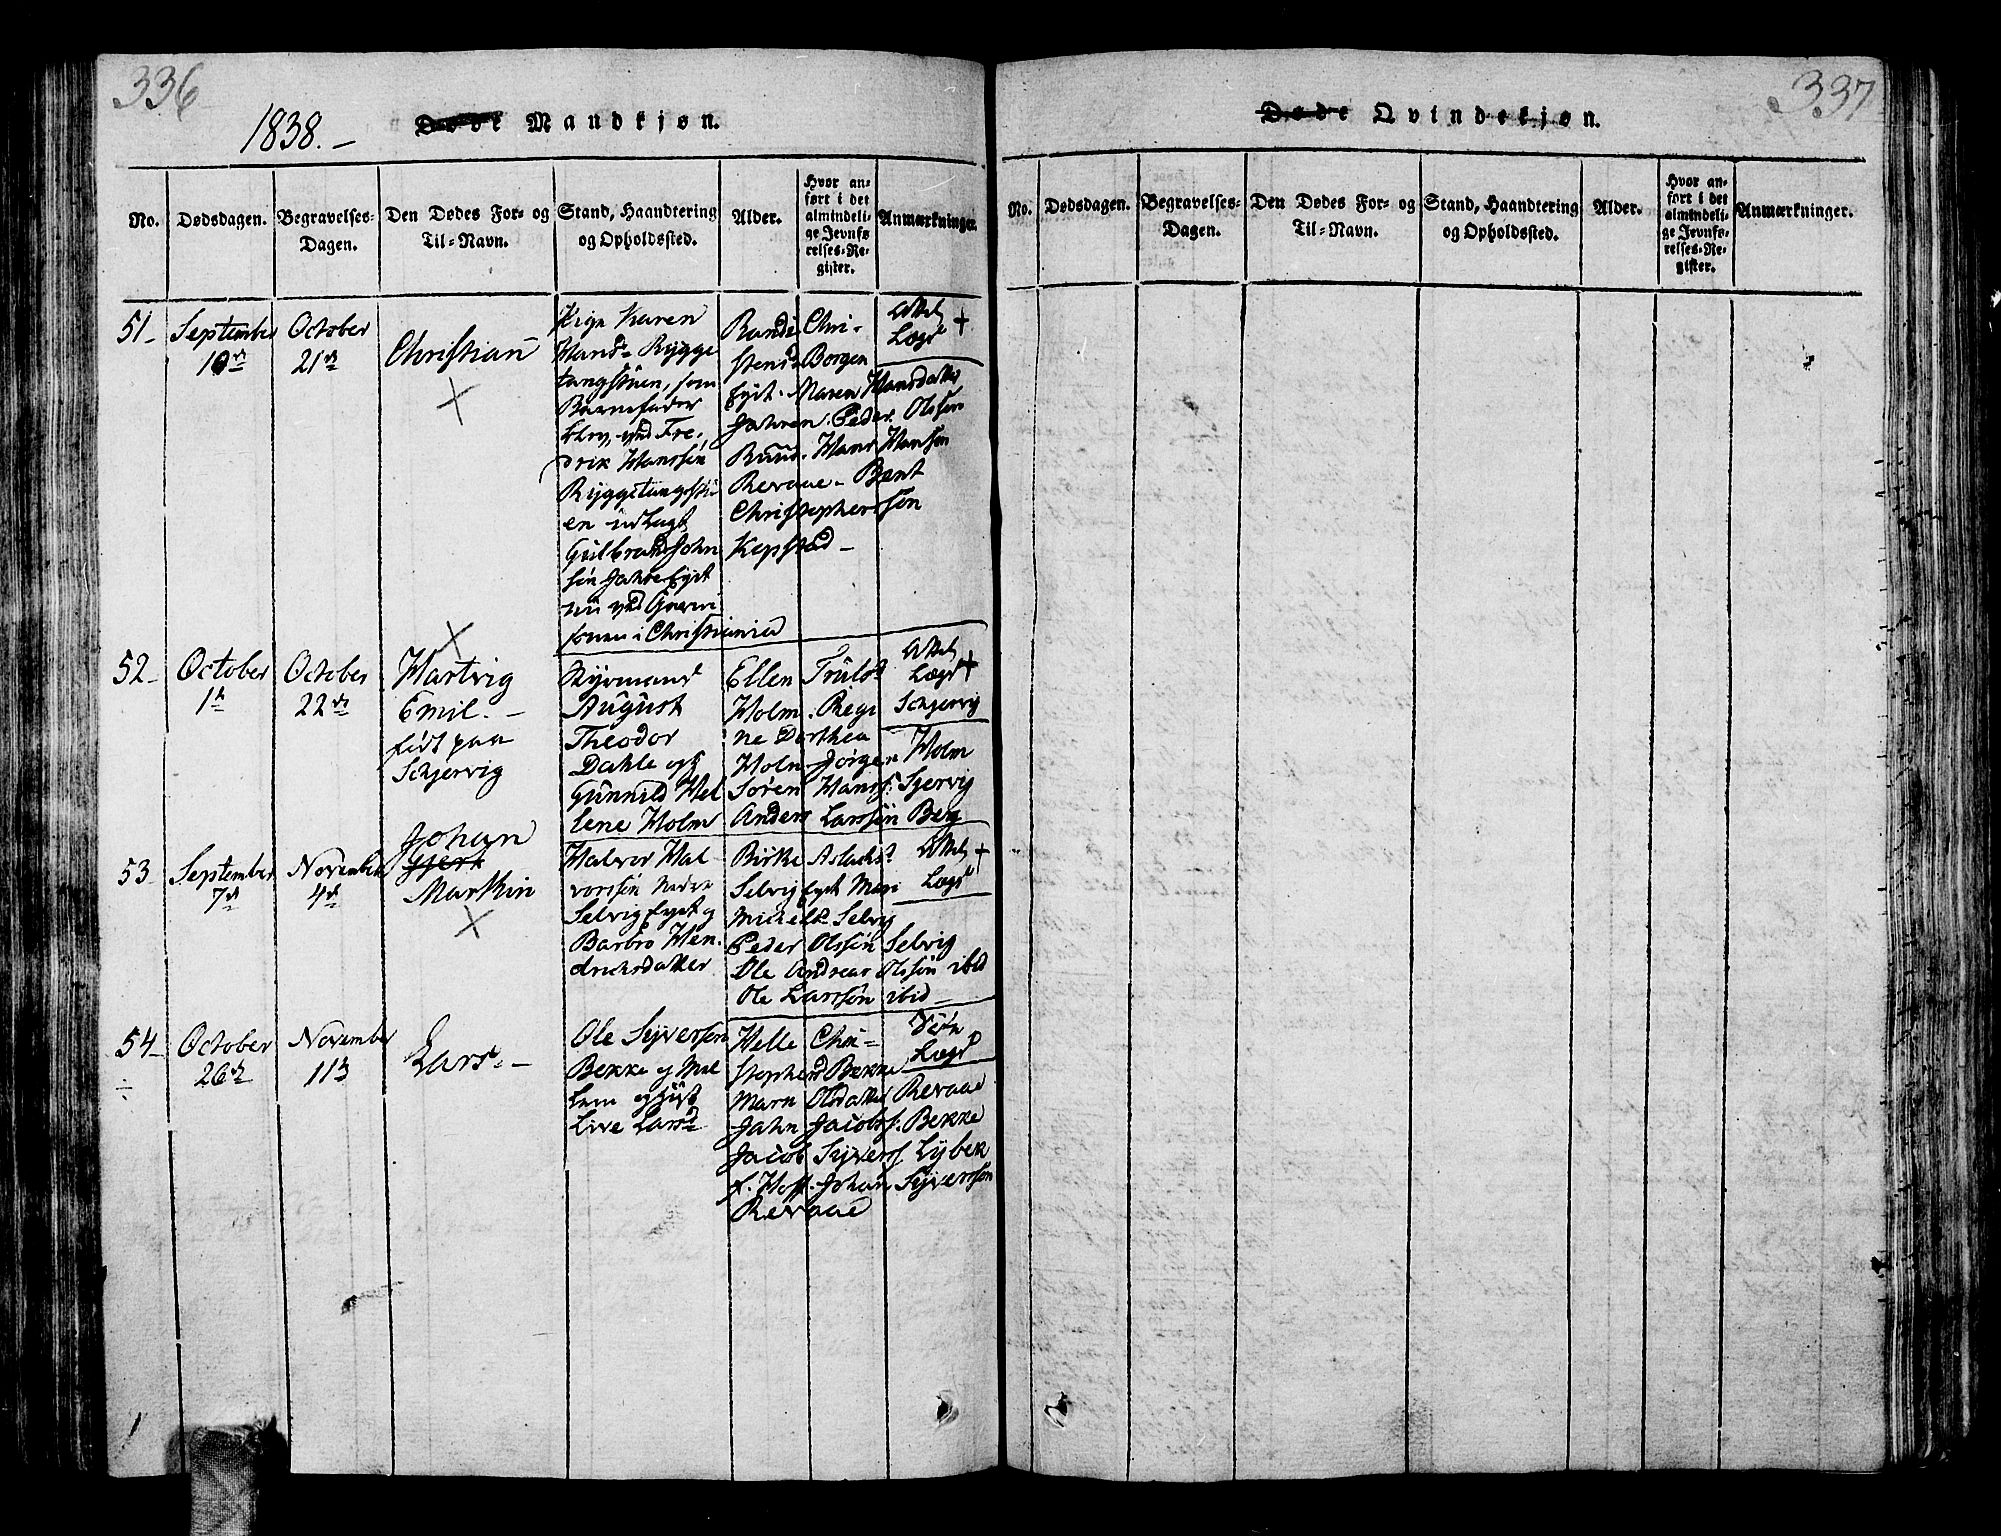 336
1838.-
Døde Mandkjøn.
No.
Dødsdagen.
Begravelses-
Dagen.
Den Dødes For- og
Til-Navn.
Stand, Haandtering
og Opholdssted.
Alder.
Hvor an-
ført i det
almindeli-
ge Jevnfø-
relses-Re-
gister.
Anmærkninger.
51-
September
10de
October
21de
Christian
Pige Karen
Hansd. Rygge
tangstuen, som
Barnefader
blev ved Fre-
drik Hanssøn
Ryggetangstu-
en udlagt
Gulbrand John
søn Jahre Eyet
nu ved Garni
sonen i Christiania
Randi Chri-
stensd. Borgen
Eyet. Maren Hansdatter
Jahren. Peder Olssøn
Ruud. Hans Hansøn
Revaae - Bent
Christophersøn
Kepstad -
Attest
Lægd +
52-
October
1ste
October
22de
Hartvig
Emil. -
født paa
Schjervig
Styrmand
August
Theodor
Dahle og
Gunnild Hel
lene Holm
Ellen Trulsd.
Holm. Regi
ne Dorthea
Holm Jørgen Holm
Søren Hanss. Sjervig
Anders Larssøn Berg
Attest
Lægd +
Schjervig
53-
September
7de
November
4de
Johan
Marthin
Halvor Hal
vorssøn Nedre
Selvig Eyet og
Barbro Hen-
drichsdatter
Birke Aslachsd.
Selvig Eyet Mari
Michelsd. Selvig
Peder Olssøn Selvig
Ole Andreas Olssøn ibid
Ole Larssøn ibid -
Attest +
Lægd
54-
October
26de
November
11te
Lars. -
Ole Syverssen
Bekke og
Live Larsd.
Helle Chri-
stophersd Bekke
Marn Olsdatter Revaae
Jahn Jacobss. Bekke
Jacob Syverss. Lybek
f. Hoff. Johan Syverssøn
Revaae
Lægd
337
Døde Qvindekjøn.
No.
Dødsdagen.
Begravelses-
Dagen.
Den Dødes For- og
Til-Navn.
Stand, Haandtering
og Opholdssted.
Alder.
Hvor an-
ført i det
almindeli-
ge Jevnfø-
relses-Re-
gister.
Anmærkninger.